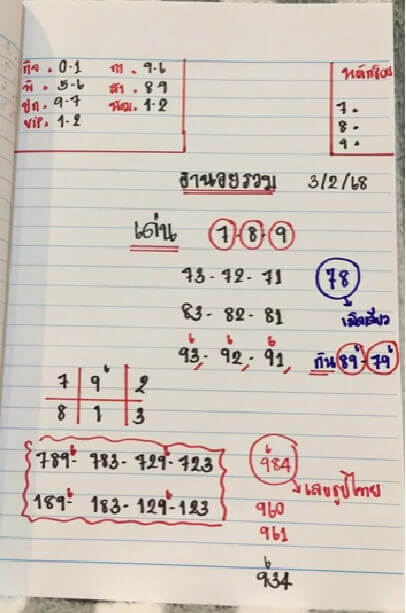 กิจ. 0-1 กา. 9-6 หลักร้อย
พิ. 5-6 สำ. 89
ปก. 9-7 พัฒ. 1-2 7-
VIP. 1-2 8-
9-
ฮานอยรวม 3/2/68
เด่น 7-8-9
73-72-71 78
83-82-81 เม็ดเดียว
93-92-91 กัน 89-79
7 9 2
8 1 3
789-783-729-723 984
189-183-129-123 เลขรูปไทย
960
961
934